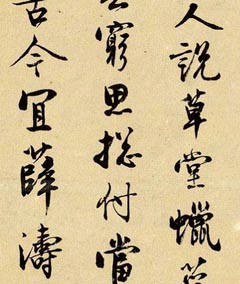 人說草堂蠟
窮思捴付當
古今宜薛濤